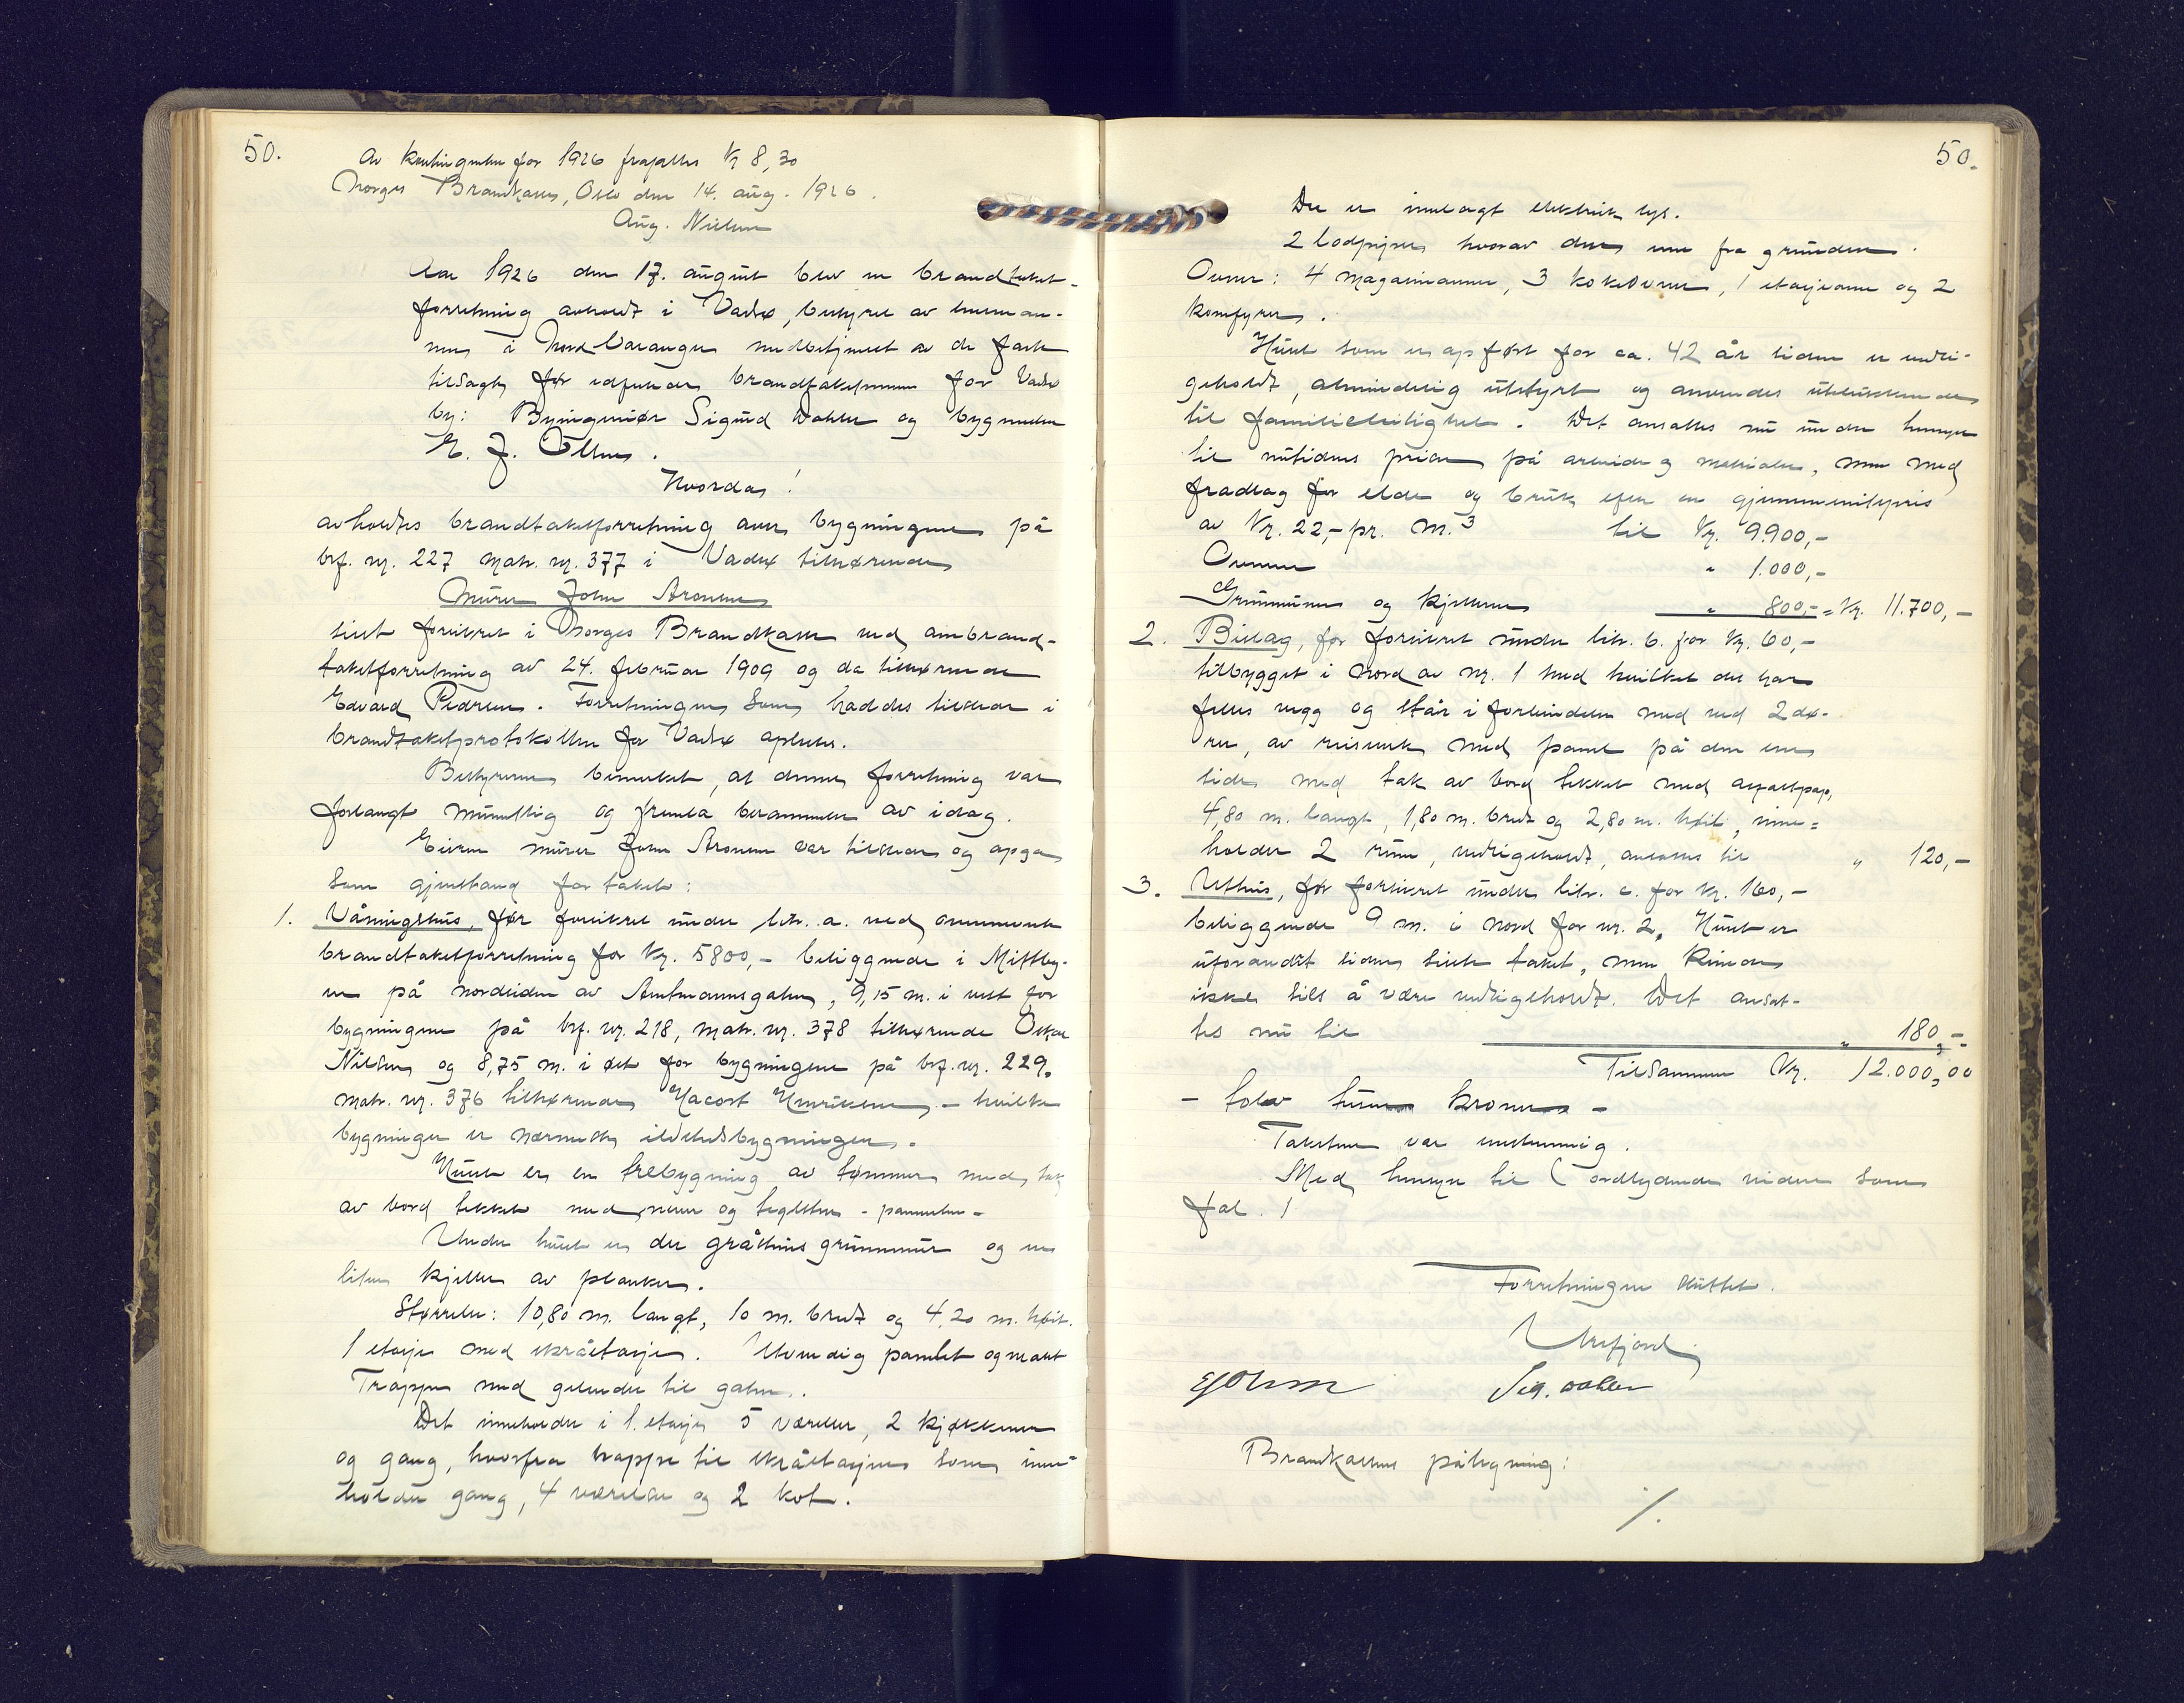 50.
Av kontingenten for 1926 frafalles Kr 8,30
Norges Brandkasse, Oslo den 14. aug. 1926.
Aug. Nielsen
Aar 1926 den 17. august blev en brandtakst-
forretning avholdt i Vadsø, bestyret av lensman-
nen i Nord Varanger medbetjenent av de fast
tilsagte før edfæstede brandtakstmenn for Vadsø
by: Byingeniør Sigurd Dahler og bygmester
E. J. Olsen.
Hvorda!
avholdtes brandtakstforretning over bygningene på
brf. nr. 227 matr. nr. 377 i Vadsø tilhørende
Murer John Aronsen
sist forsikret i Norges Brandkasse ved ombrand-
takstforretning av 24. februar 1909 og da tilhørende
Edvard Pedersen. Forretningen som haddes tilstede i
brandtakstprotokollen for Vadsø oplæstes.
Bestyreren bemerket, at denne forretning var
forlangt mundtlig og fremla berammelse av idag.
Eieren murer John Aronsen var tilstede og opga
som gjenstand for takst:
1. Våningshus, før forsikret under litr. a. ved ovennevnte
brandtakstforretning for Kr. 5800,- beliggende i Midtby-
en på nordsiden av Amtmannsgaten, 9,15 m. i vest for
bygningene på brf. nr. 218, matr. nr. 378 tilhørende Oskar
Nilsen og 8,75 m. i øst for bygningene på brf. nr. 229.
matr. nr. 376 tilhørende Henriksen, - hvilke
bygninger er nærmeste ildstedsbygninger.
Huset er en trebygning av tømmer med tak
av bord tekket med never og teglsten - pannesten -
Under huset er der gråstens grunnmur og en
liten kjeller av planker.
Størrelse: 10,80 m. langt, 10 m. bredt og 4,20 m. høit.
1 etasje med skråetasje. Utvendig panelt og malt
Trapper med gelender til gaten.
Det inneholder i 1. etasje 5 værelser, 2 kjøkkener
og gang, hvorfra trappe til skråetasjen som inne-
holder gang, 4 værelser og 2 kot.
50.
Der er innlagt elektrisk lys.
2 lodpiper hvorav den ene fra grunden.
Ovner: 4 magasinovner, 3 kokeovner, 1 etasjeovn og 2
komfyrer.
Huset som er opført for ca. 42 år siden er vedli-
geholdt, almindelig utstyrt og anvendes utelukkende
til familieleilighet. Det ansattes nu under hensyn
til nutidens priser på arbeide og materialer, men med
fradrag for elde og bruk efter en gjennemsnitspris
av Kr. 22,- pr. m.3 til Kr. 9.900,-
Ovnene " 1.000,-
Grunnmuren og kjelleren " 800,- = Kr. 11.700,-
2. Bislag, før forsikret under litr. b. for Kr. 60,-
tilbygget i nord av nr. 1 med hvilket det har
felles vegg og står i forbindelse med ved 2 dø-
rer, av reisverk med panel på den ene
side med tak av bord tekket med asfaltpap,
4,80 m. langt, 1,80 m. bredt og 2,80 m. høit, inne=
holder 2 rum, vedligeholdt, ansattes til " 120,-
3. Uthus, før forsikret under litr. c. for Kr. 160,-
beliggende 9 m. i nord for nr. 2. Huset er
uforandret siden siste takst, men kunde
ikke sies å være vedligeholdt. Det ansat-
tes nu til " 180,-
Tilsammen Kr. 12.000,00
- tolv tusen kroner -
Taksten var enstemmig.
Med hensyn til ( ordlydende videre som
fol. 1
Forretningen sluttet.
Urefjord
EJOlsen Sig. Dahler
Brandkassens påtegning:
/.